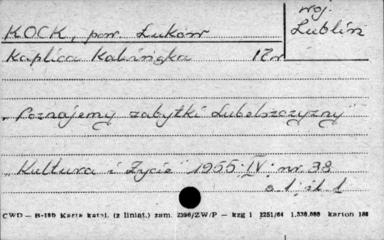 woj.
KOCK, pow. Łuków
Lublin
Kaplica Kalwińska 17w
"Poznajemy zabytki Lubelszczyzny"
"Kultura i Życie" 1955. IV. nr. 38
s. 1. il. 1
CWD — B-18b Karta katal. (z liniat.) zam. 2396/ZW/P — kzg 1 2251/64 1.530.000 karton 180